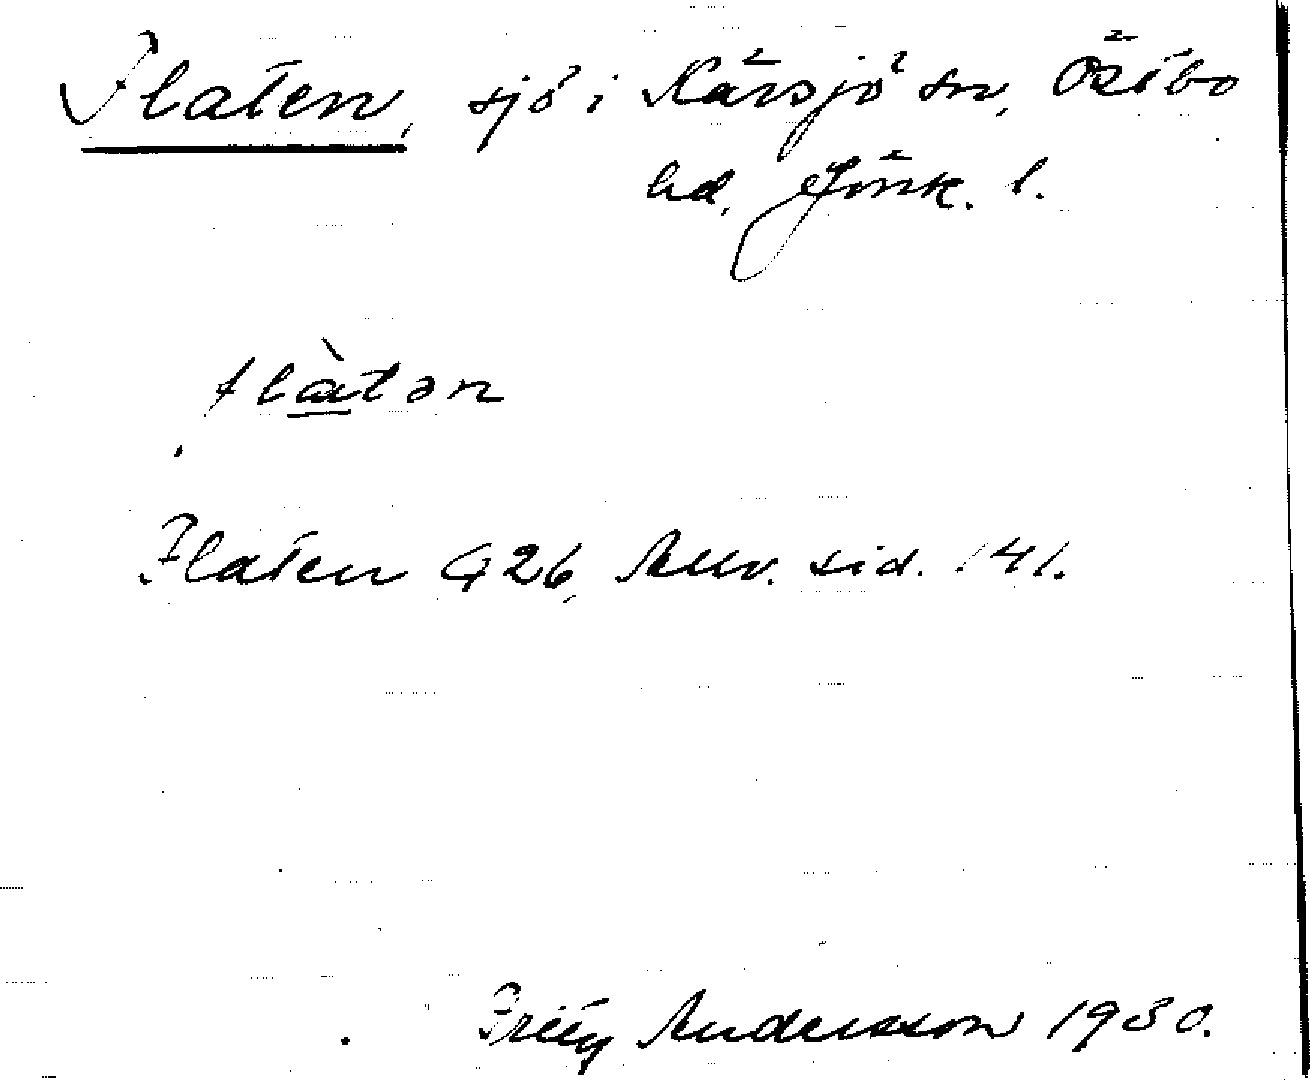 Flaten, sjö i Kärsjö sn, Östbo
hd, Jönk. l.
flàtən
Flaten G 26, Allv. sid. 141.
Fritz Andersson 1930.